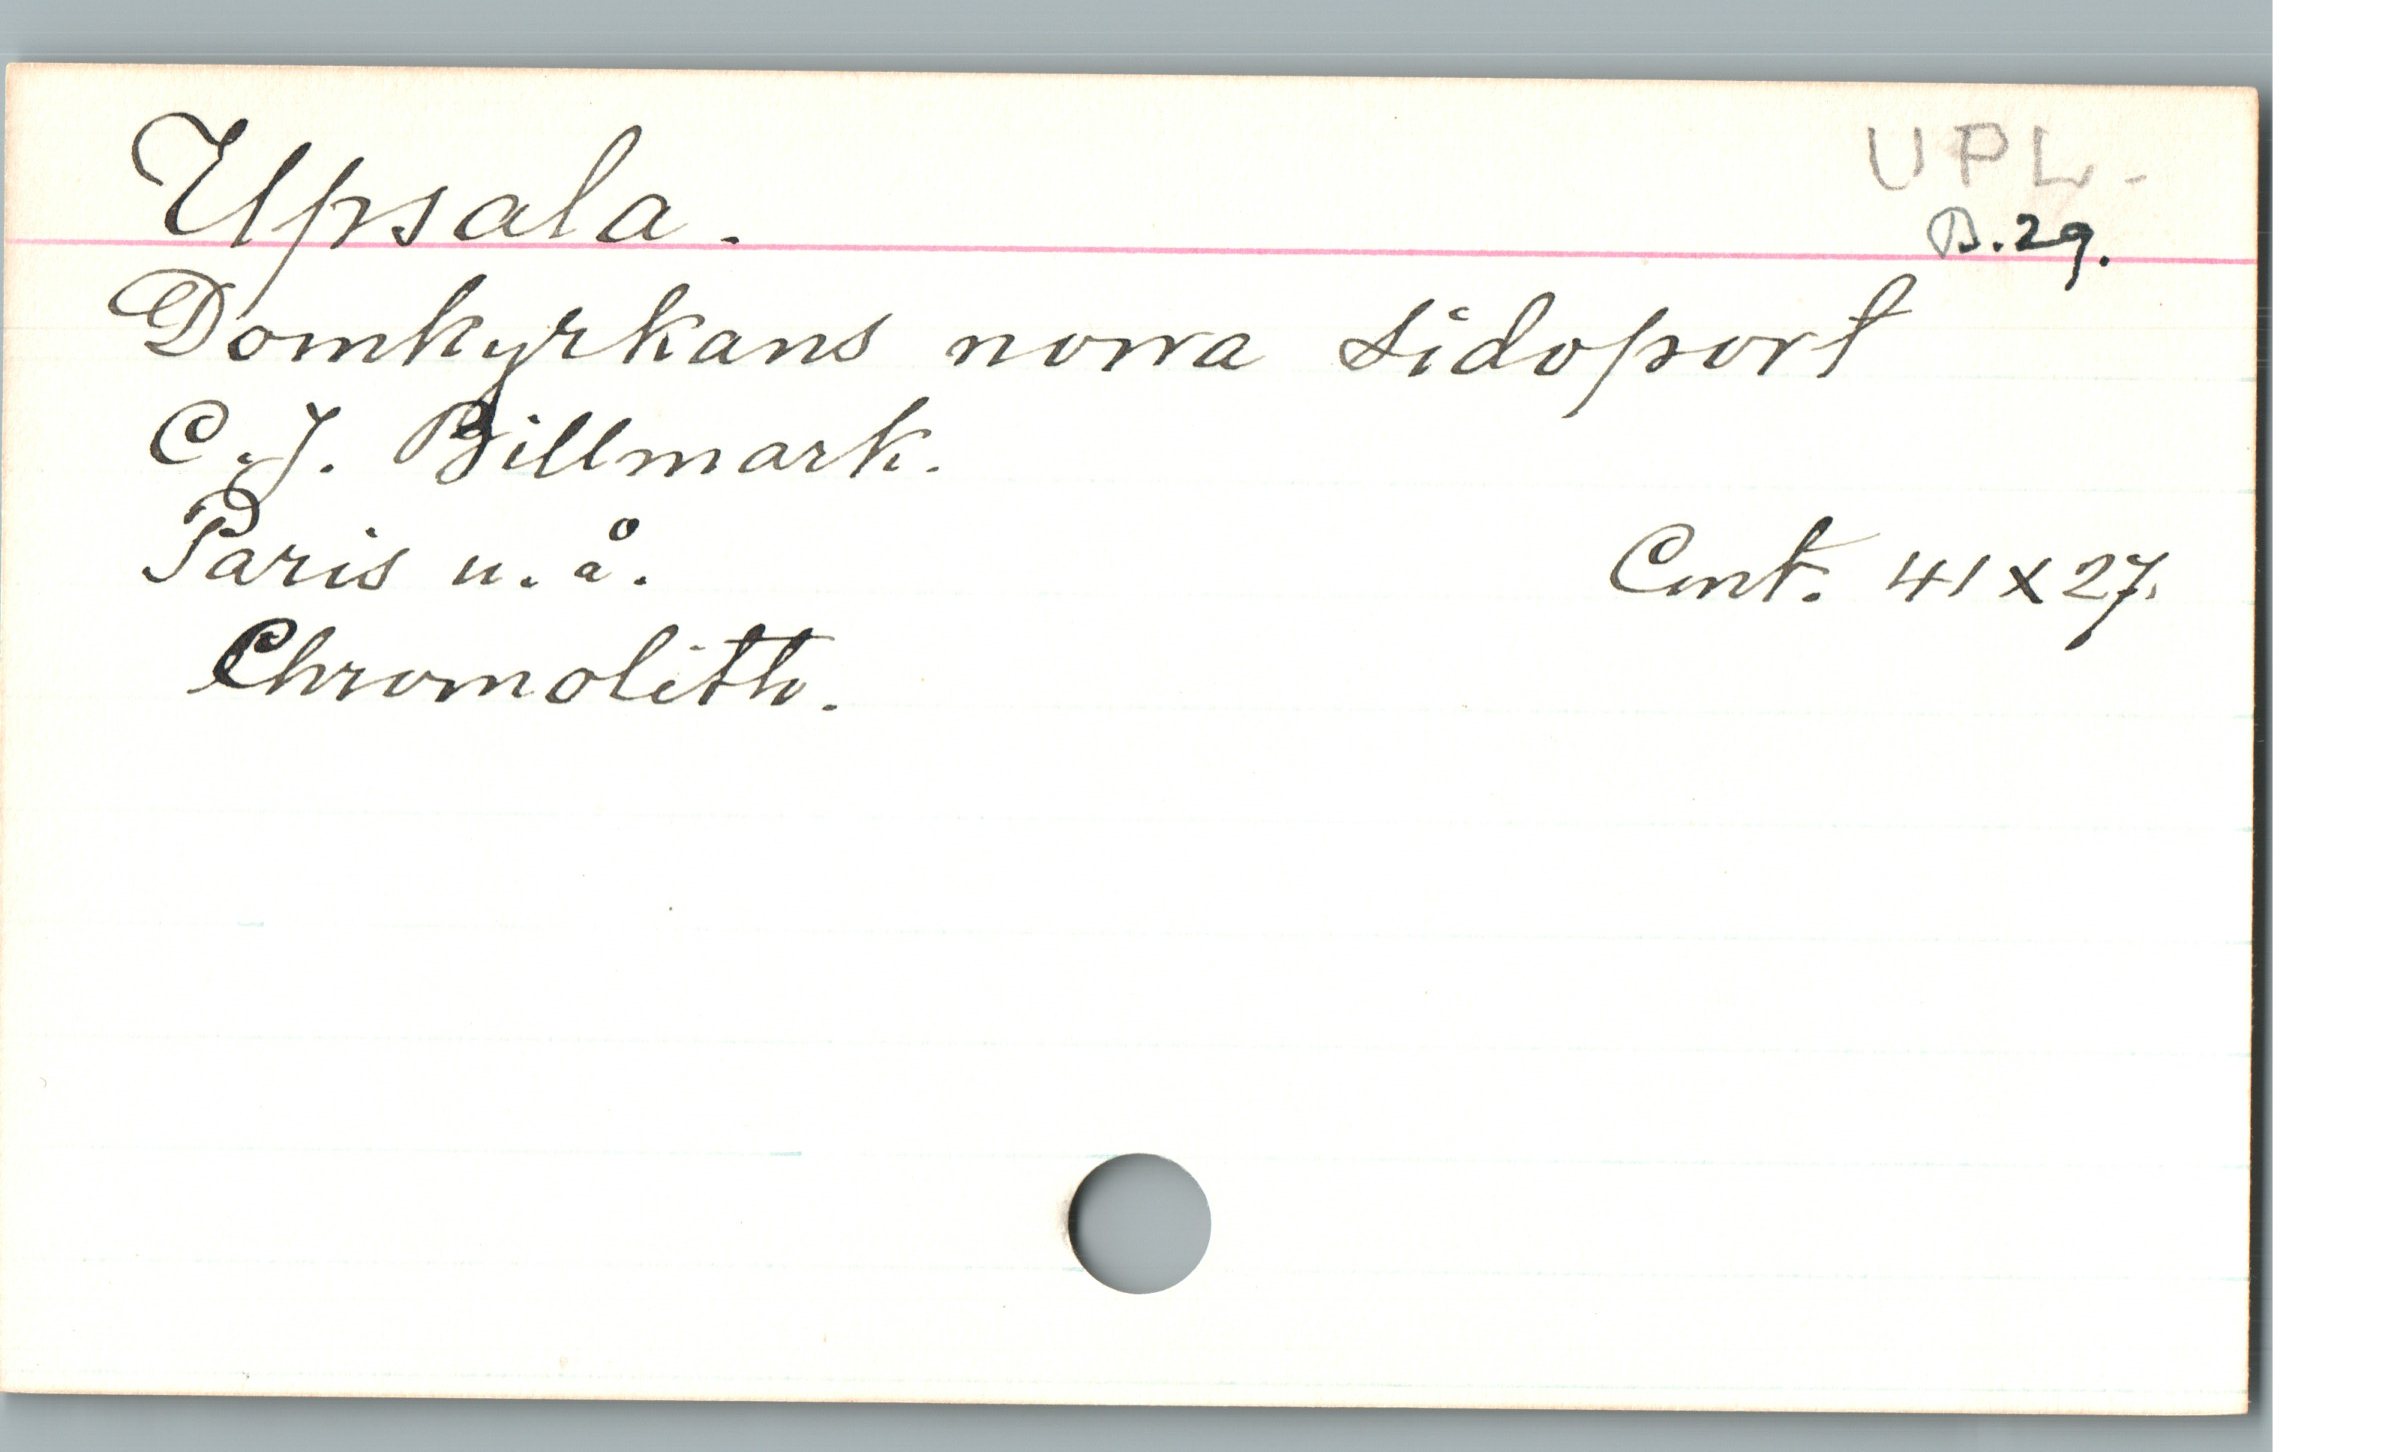 Upsala.
UPL.
B.29.
Domkyrkans norra sidoport
C.J. Billmark.
Paris u.å.
Cent. 41 x 27.
Chromolith.